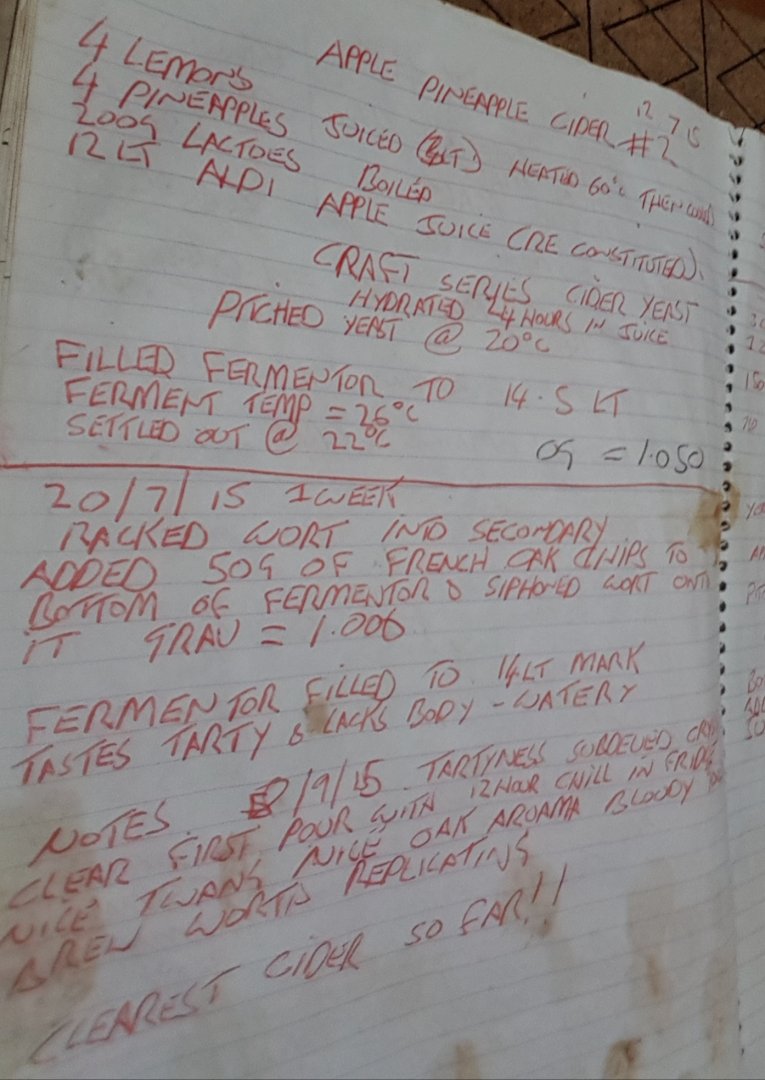 APPLE PINEAPPLE CIDER #2
12 7 15
4 LEMONS
4 PINEAPPLES JUICED ( LT) HEATED 60°C THEN
200G LACTOES BOILED
12 LT ALDI APPLE JUICE (RE CONSTITUTED).
CRAFT SERIES CIDER YEAST
HYDRATED 24 HOURS IN JUICE
PITCHED YEAST @ 20°C
FILLED FERMENTOR TO 14.5 LT
FERMENT TEMP = 26°C
SETTLED OUT @ 22°C
OG = 1.050
20/7/15 1 WEEK
RACKED WORT INTO SECONDARY
ADDED 50G OF FRENCH OAK CHIPS TO
BOTTOM OF FERMENTOR & SIPHONED WORT ONTO
IT GRAV = 1.006
FERMENTOR FILLED TO 14LT MARK
TASTES TARTY & LACKS BODY - WATERY
NOTES /9/15 TARTYNESS SUBDEUED
CLEAR FIRST POUR WITH 12 HOUR CHILL IN FRIDGE
NICE TWANG NICE OAK AROAMA BLOODY
BREW WORTH REPLICATING
CLEAREST CIDER SO FAR!!